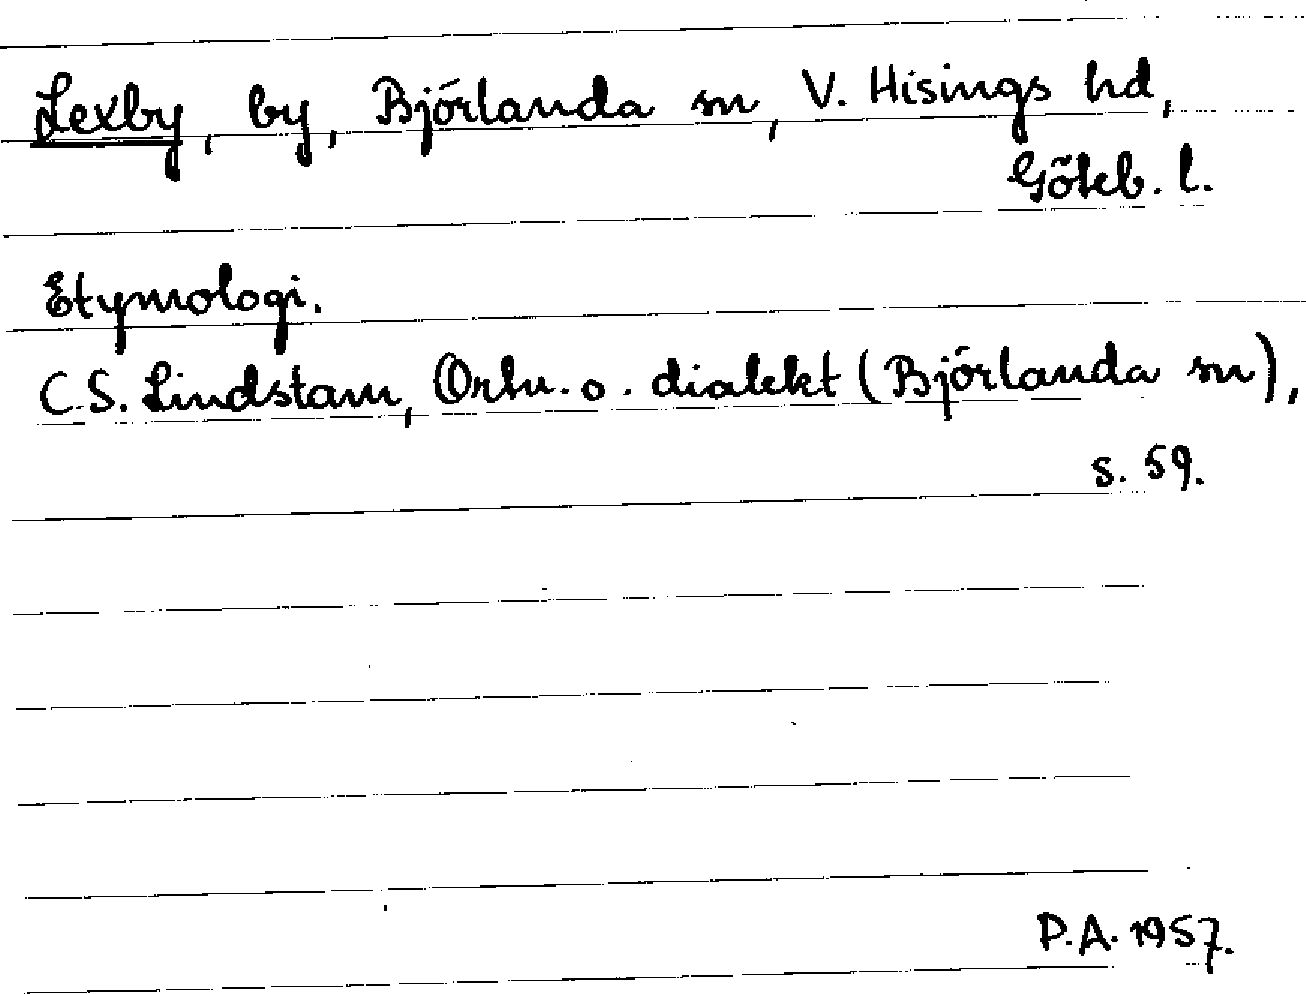 Lexby, by, Björlanda sn, V. Hisings hd,
Göteb. l.
Etymologi.
C.S. Lindstam, Ortn. o. dialekt (Björlanda sn),
s. 59.
P.A. 1957.